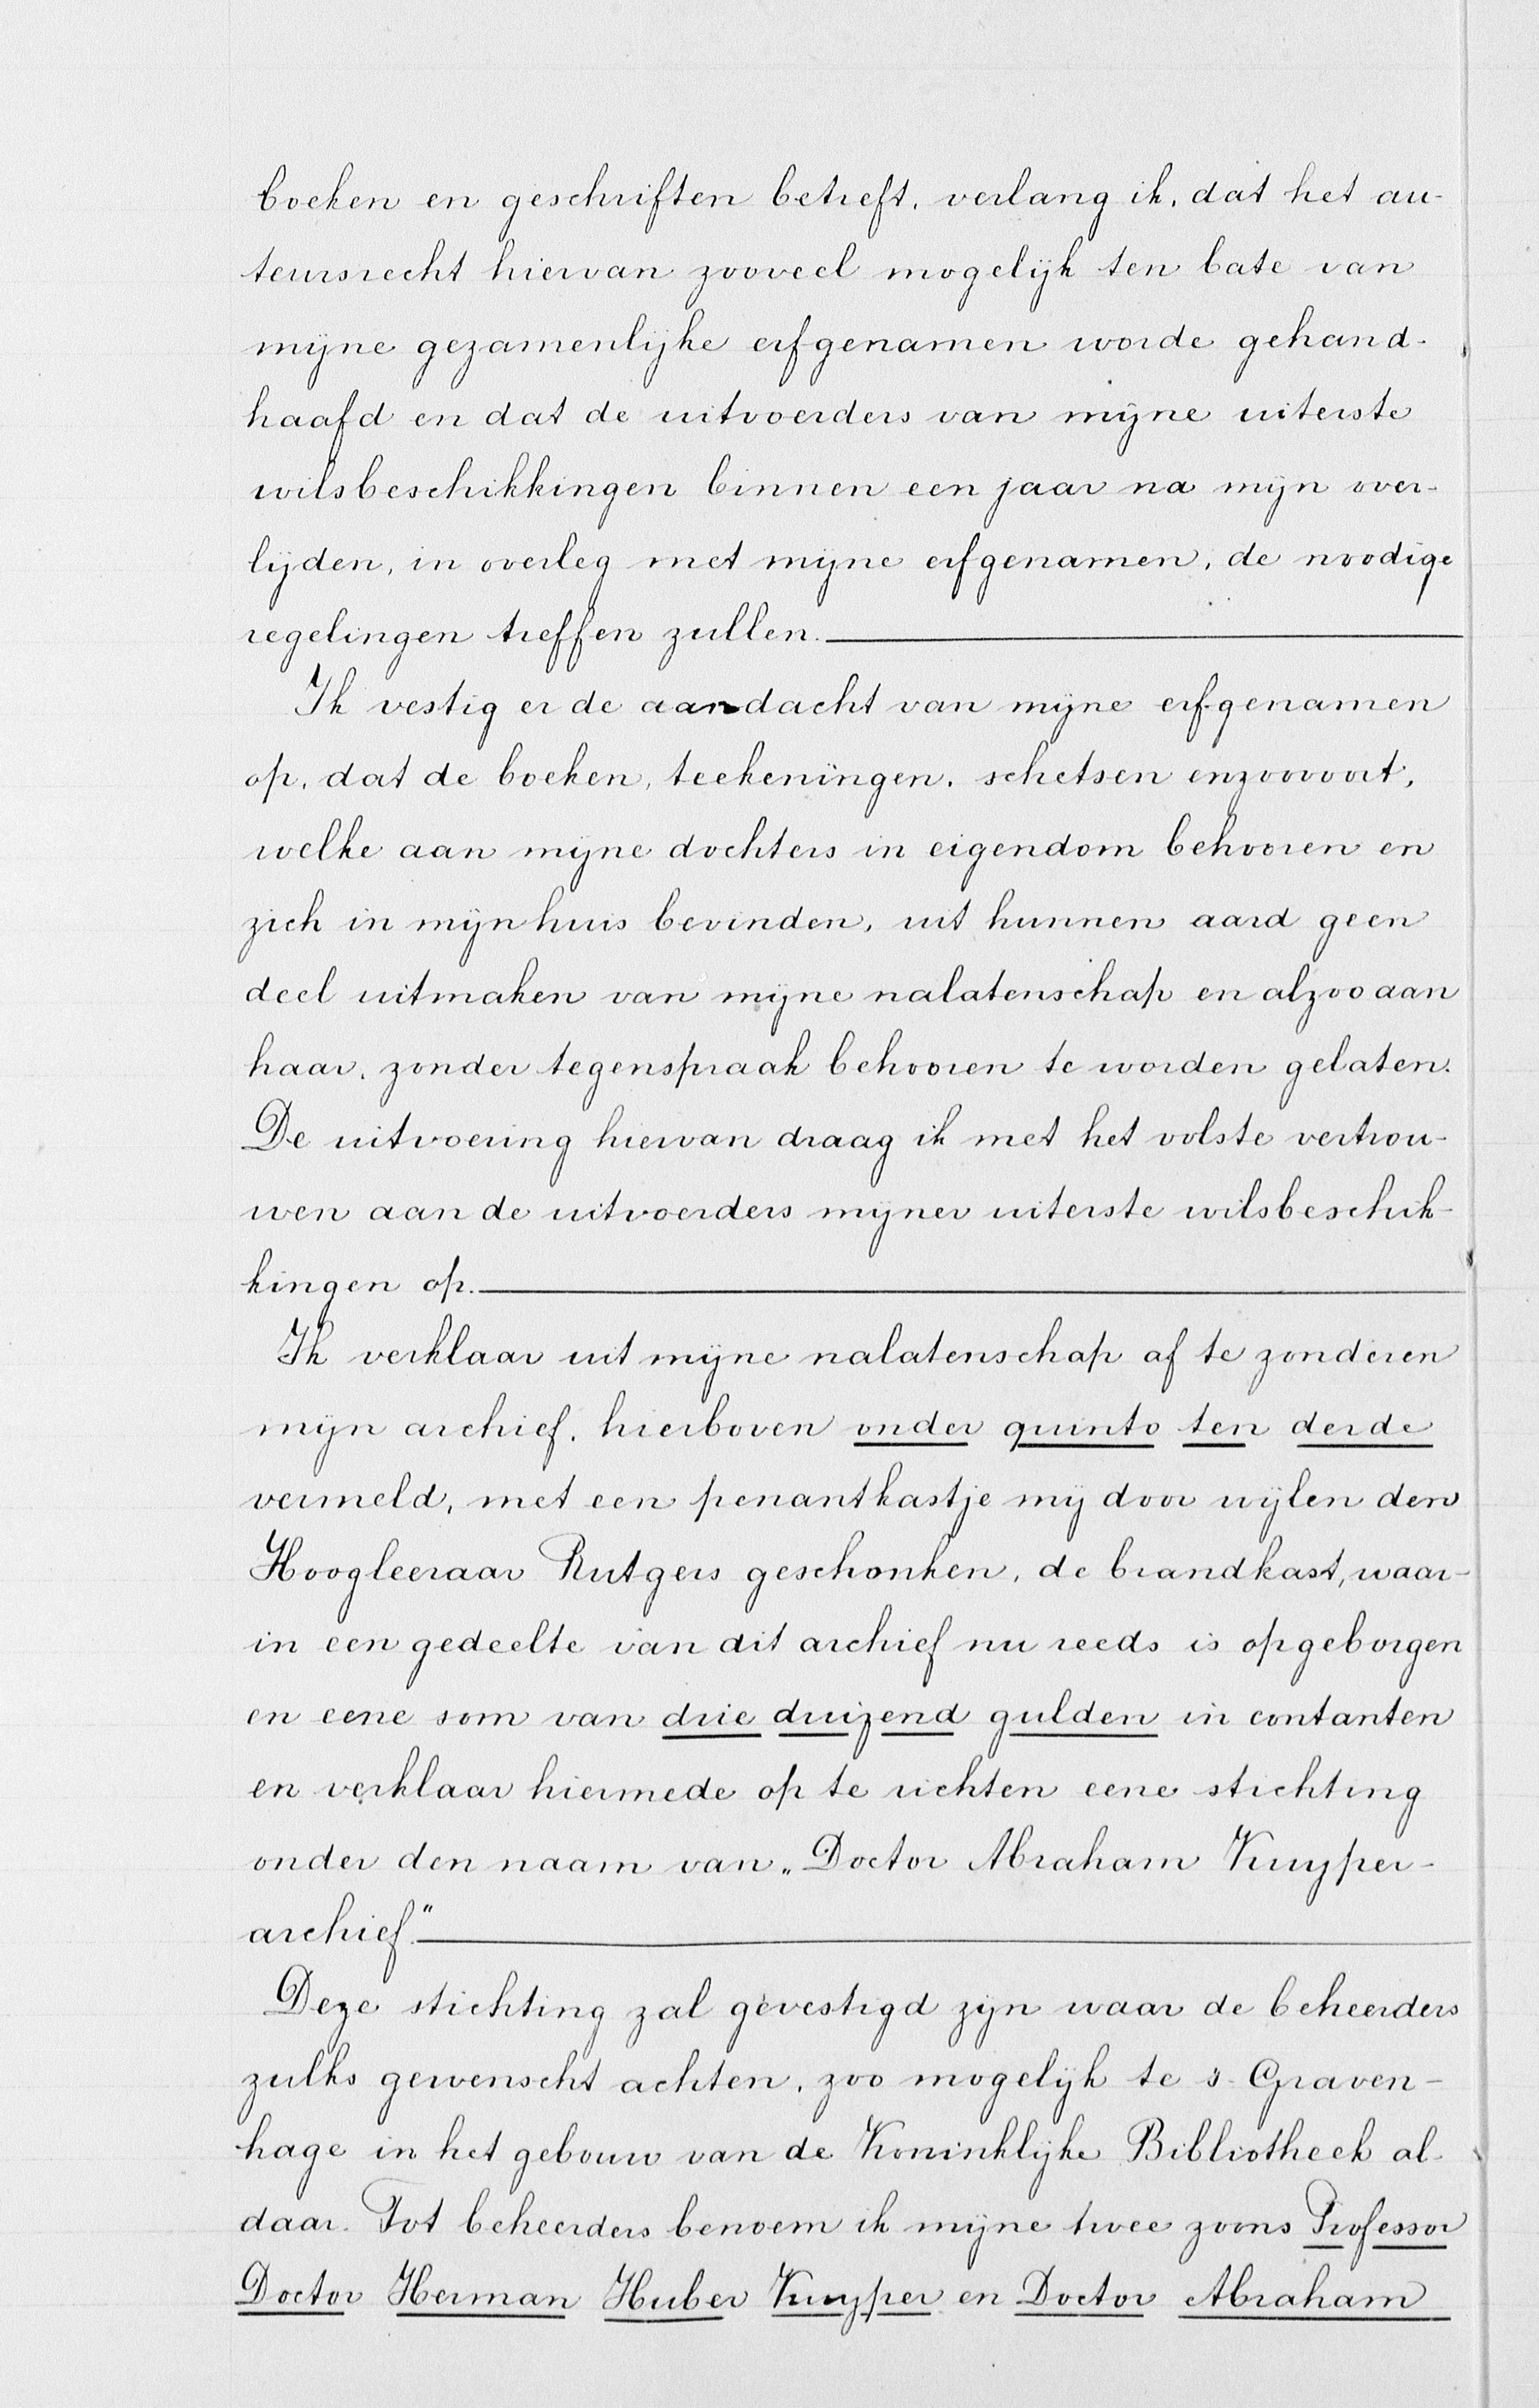 boeken en geschriften betreft, verlang ik, dat het au-
teursrecht hiervan zooveel mogelijk ten bate van
mijne gezamenlijke erfgenamen worde gehand-
haafd en dat de uitvoerders van mijne uiterste
wilsbeschikkingen binnen een jaar na mijn over-
lijden, in overleg met mijne erfgenamen, de noodige
regelingen treffen zullen.
Ik vestig er de aandacht van mijne erfgenamen
op, dat de boeken, teekeningen, schetsen enzoovoort,
welke aan mijne dochters in eigendom behooren en
zich in mijn huis bevinden, uit hunnen aard geen
deel uitmaken van mijne nalatenschap en alzoo aan
haar, zonder tegenspraak behooren te worden gelaten.
De uitvoering hiervan draag ik met het volste vertrou-
wen aan de uitvoerders mijner uiterste wilsbeschik-
kingen op.
Ik verklaar uit mijne nalatenschap af te zonderen
mijn archief, hierboven onder quinto ten derde
vermeld, met een penantkastje mij door wijlen den
Hoogleeraar Rutgers geschonken, de brandkast, waar-
in een gedeelte van dit archief nu reeds is opgeborgen
en eene som van drie duizend gulden in contanten
en verklaar hiermede op te richten eene stichting
onder den naam van „Doctor Abraham Kuyper-
archief."
Deze stichting zal gevestigd zijn waar de beheerders
zulks gewenscht achten, zoo mogelijk te s-Graven-
hage in het gebouw van de Koninklijke Bibliotheek al-
daar. Tot beheerders benoem ik mijne twee zoons Professor
Doctor Herman Huber Kuyper en Doctor Abraham